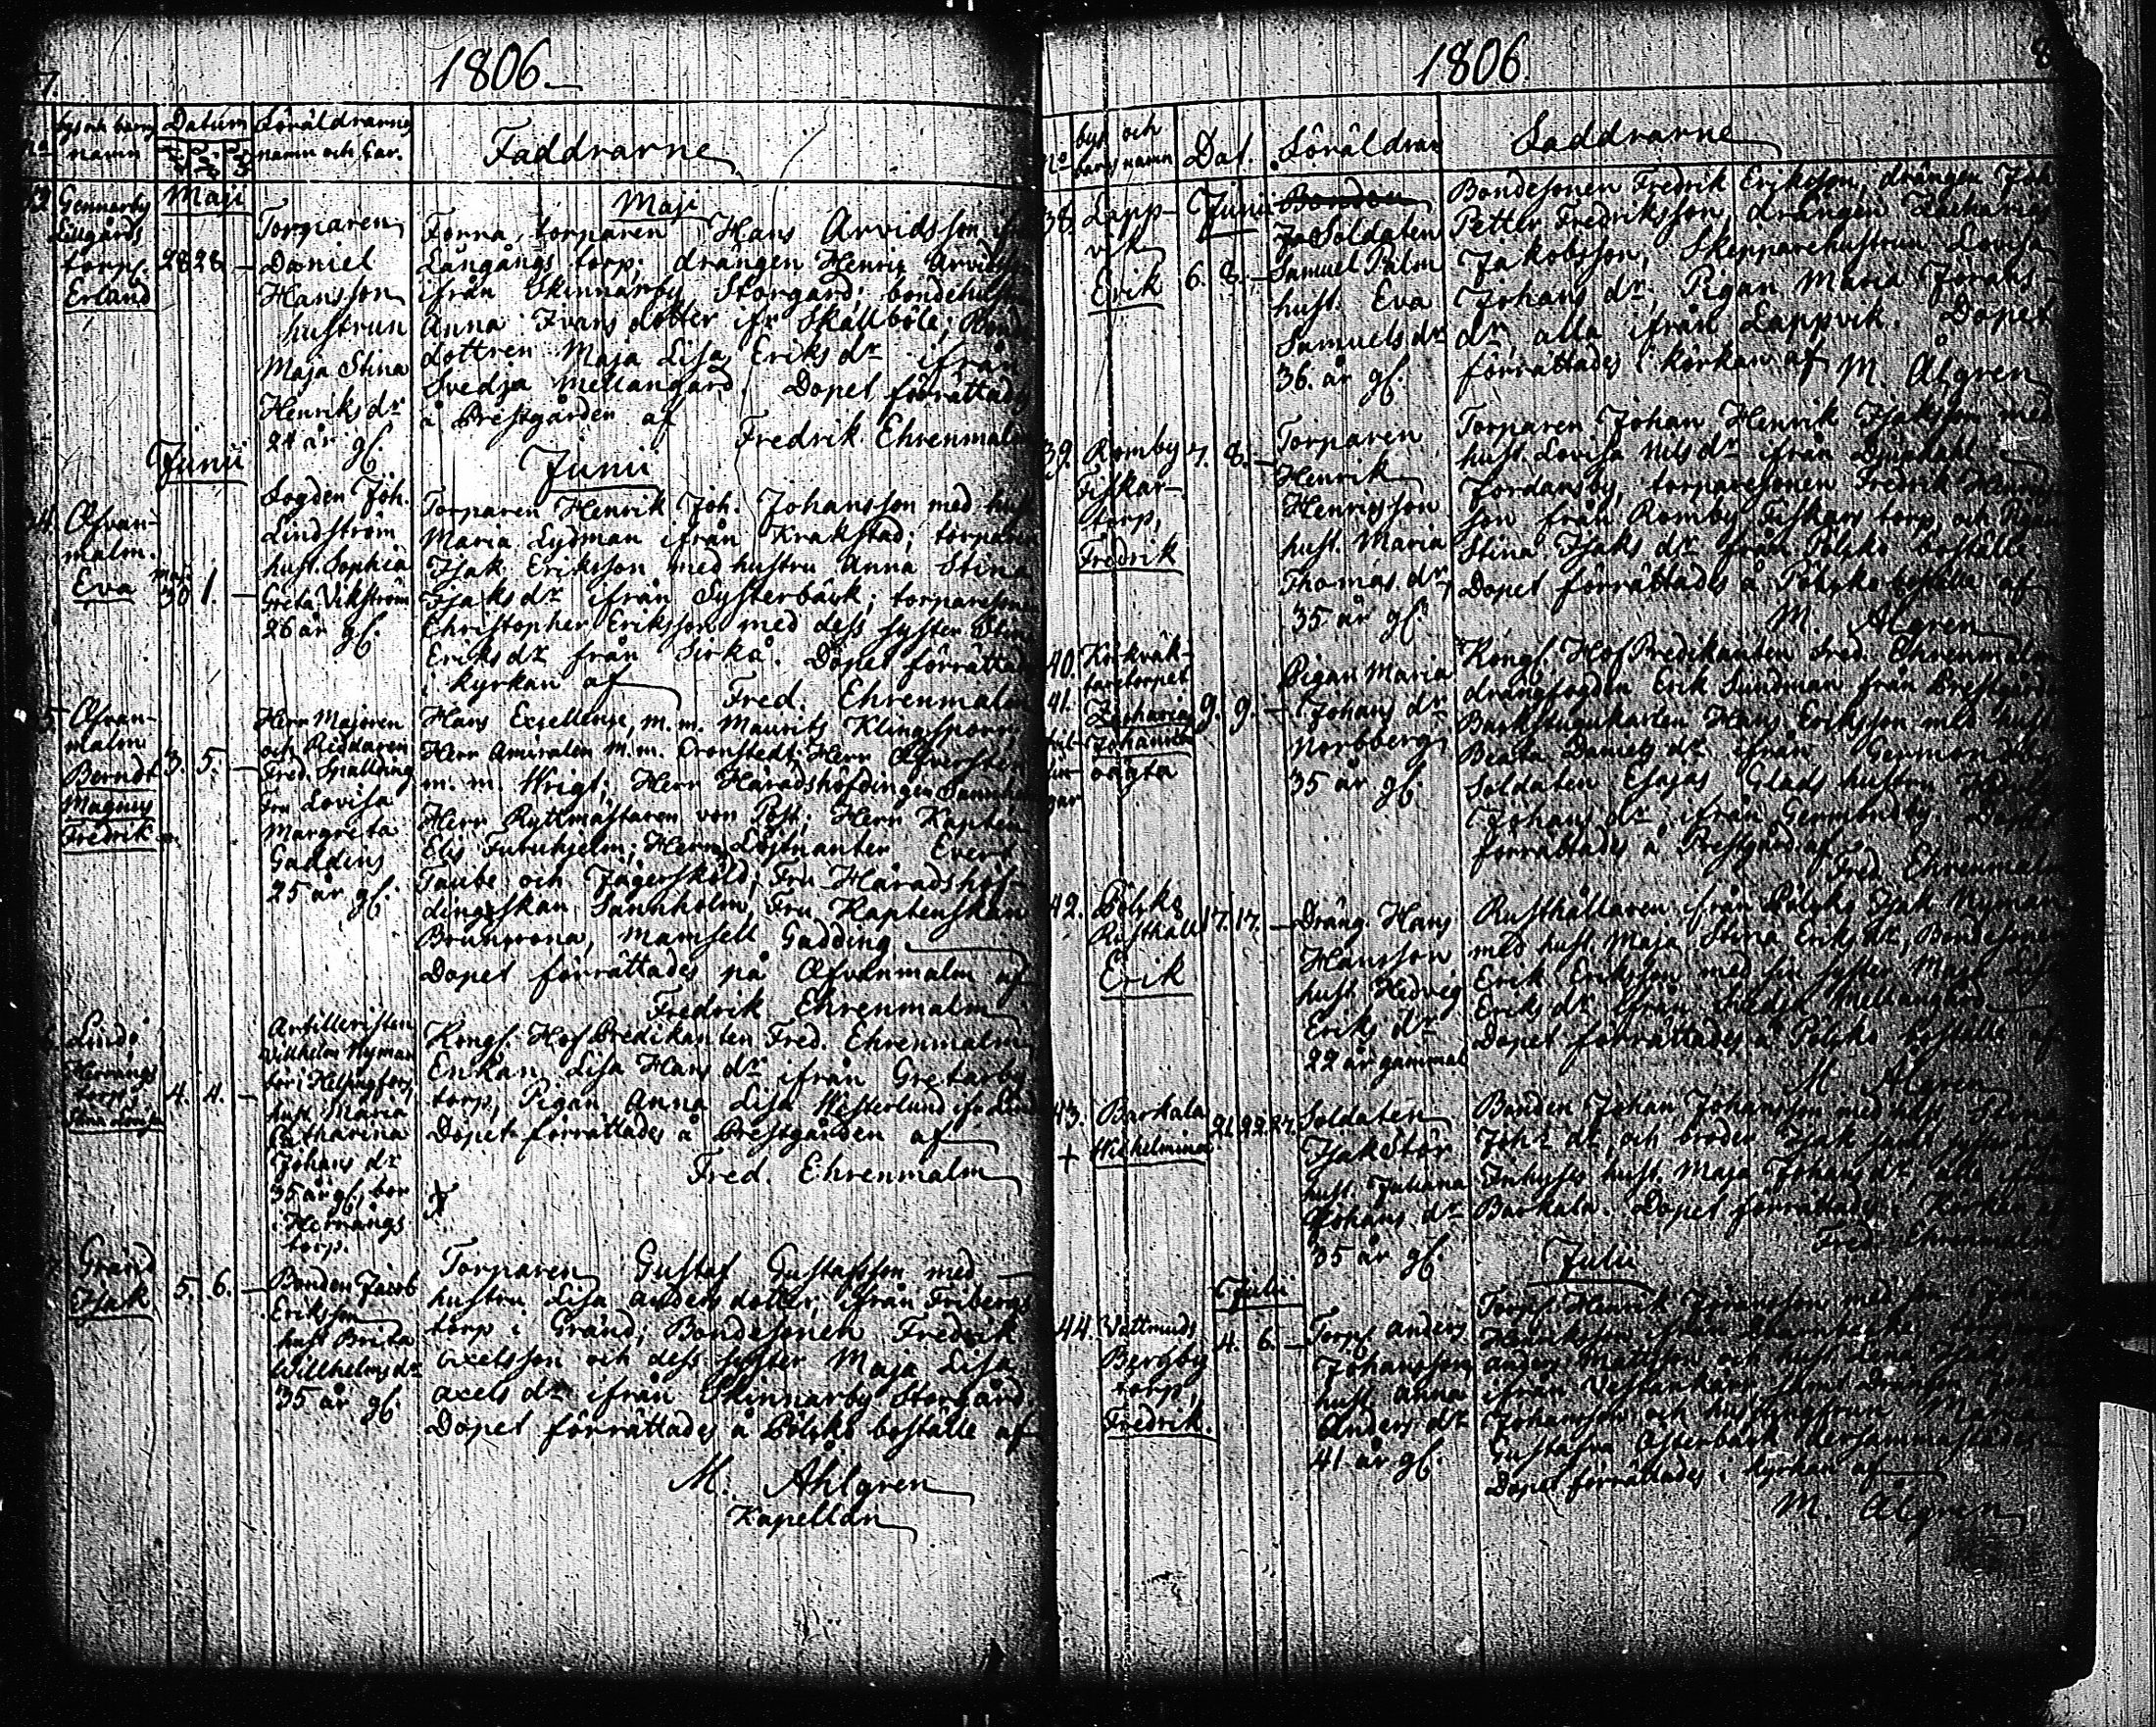 7.
1806.
by och barns
namn
Datum
Föräldrarnes
namn och har.
Faddrarne
Gennarby
Lillgårds
torp.
Erland
Maji
28 28 –
Torparen
Daniel
Hansson
hustrun
Maja Stina
Henriksdr
24 år gl.
Maji
Torparen Hans Arvidsson
Långångs torp; drängen Henric Arvidsson
ifrån Skinnarby Storgård; bondehustrun
Anna Ivars dotter ifr Skällböle; Bonde
dottren Maja Lisa Eriks dr ifrån
Svedja Mellangård. Dopet förrättades
å Prestgården af
Fredrik Ehrenmalm
Junii
34.
Æfvan-
malm.
Eva
Maji
30 1. –
Fogden Joh.
Lindström
hust. Sophia
Greta Vikström
26 år gl.
Junii
Torparen Henrik Joh. Johansson med hust
Maria Lydman ifrån Krakstad; torparen
Isak Eriksson med hustru Anna Stina
Isaks dr ifrån Systerbäck; torparesonen
Christopher Eriksson med dess syster Stina
Eriks dr från Sirkå. Dopet förrättades
i kyrkan af
Fred. Ehrenmalm
Æfvan-
malm
Berndt
Magnus
Fredrik
3. 5. –
Herr Majoren
och Riddaren
Fred. Spalding
Fru Lovisa
Margreta
Gadding
25 år gl.
Hans Excellence, m.m. Maurits Klingsporr
Herr Amiralen m.m. Cronstedt; Herr Æfversten
m. m. Wrigt; Herr Häradshöfdingen Sannholm
Herr Ryttmästaren von Post; Herr Kapten
Elis Furuhjelm; Herrar Löjtnanter Evert
Taube och Jägerskold; Fru Häradshöf-
dingskan Sannholm, Fru Kaptenskan
Bruncrona, Mamsell Gadding
Dopet förrättades på Æfvanmalm af
Fredrik Ehrenmalm
Lindö
Herrängs
torp,
Stina Lovisa
4. 4. –
Artilleristen
Willhelm Nyman
bor i Helsingfors,
hust. Maria
Catharina
Johans dr
35 år gl., bor
i Herrängs
torp.
Kongl. Hof Predikanten Fred. Ehrenmalm
Enkan Lisa Hans dr ifrån Gretarby
torp, Pigan Anna Lisa Westerlund ifr Lindö
Dopet förrättades å Prestgården af
Fred. Ehrenmalm
Gränd
Isak
5. 6. –
Bonden Jacob
Eriksson
hust Brita
Willhelms dr
35 år gl.
Torparen Gustaf Gustafsson med
hustru Lisa Anders dotter, ifrån Fribergs
torp i Gränd; Bondesonen Fredrik
Axelsson och dess syster Maja Lisa
Axels dr ifrån Skinnarby Storgård
Dopet förrättades å Pölskö boställe af
M. Ahlgren
Kapellan
1806.
8
No
byns och
barns namn
Dat.
Föräldrar
Faddrarne
38
Lapp-
vik
Erik
Junii
6. 8. –
Soldaten
Samuel Palm
hust. Eva
Samuels dr
36. år gl.
Bondesonen Fredrik Eriksson, drängen Joh
Petter Fredriksson, drängen Zacharias
Jakobsson, Skepparehustrun Lovisa
Johans dr, Pigan Maria Johans
dr, alla ifrån Lappvik. Dopet
förrättades i körkan af M. Ålgren
39.
Romby
Fiskar-
torp,
Fredrik
7. 8. –
Torparen
Henrik
Henriksson
hust. Maria
Thomas dr
35 år gl.
Torparen Johan Henrik Isaksson med
hust. Lovisa Nils dr ifrån Djupdahl
Jordansby, torparesonen Fredrik Henriks-
son från Romby Fiskars torp, och Pigan
Stina Isaks dr från Pölskö boställe.
Dopet förrättades å Pölskö boställe af
M. Ålgren
40.
41.
Körkväk-
taretorpet
Zacharias
Johannes
oägta
9. 9. –
Pigan Maria
Johans dr
Norbberg
35 år gl.
Kongl. Hof Predikanten Fred. Ehrenmalm
drängfogden Erik Sundman från Prestgården
Backstugukarlen Hans Eriksson med hust
Beata Daniels dr ifrån Germondby
Soldaten Esajas Glads hustru
Johans dr ifrån Germondby. Dopet
förrättades å Prestgård. af
Fred. Ehrenmalm
42.
Pölskö
Rusthåll
Erik
17. 17. –
Dräng. Hans
Hansson
hust. Hedvig
Eriks dr
22 år gammal
Rusthållaren ifrån Pölskö Isak Nyman
med hust. Maja Stina Eriks dr, Bondesonen
Erik Eriksson med sin syster Maja Lisa
Eriks dr ifrån Svedja Mellangård
Dopet förrättades å Pölskö boställe af
M. Ålgren
43.
+
Backala
Wilhelmina
21. 22. 27.
Soldaten
Isak Stör
hust. Juliana
Johans dr
35 år gl.
Bonden Johan Johansson med hust Stina
Joh: dr, och broder Isak samt syster
Inhyses hust. Maja Johans dr, alla ifrån
Backala. Dopet förrättades i Körkan af
Fred. Ehrenmalm
Julii
Julii
44.
Bergby
torp,
Fredrik.
4. 6. –
Torp. Anders
Johansson
hust. Anna
Anders dr
41 år gl.
Torp. Henrik Johansson med
Henriksson ifrån
Anders Mattsson och hust Lena Isak
ifrån Vestankärr, samt
Johansson och Maria
Gustafva Österback dersammastädes
Dopet förrättades i kyrkan af
M. Ålgren